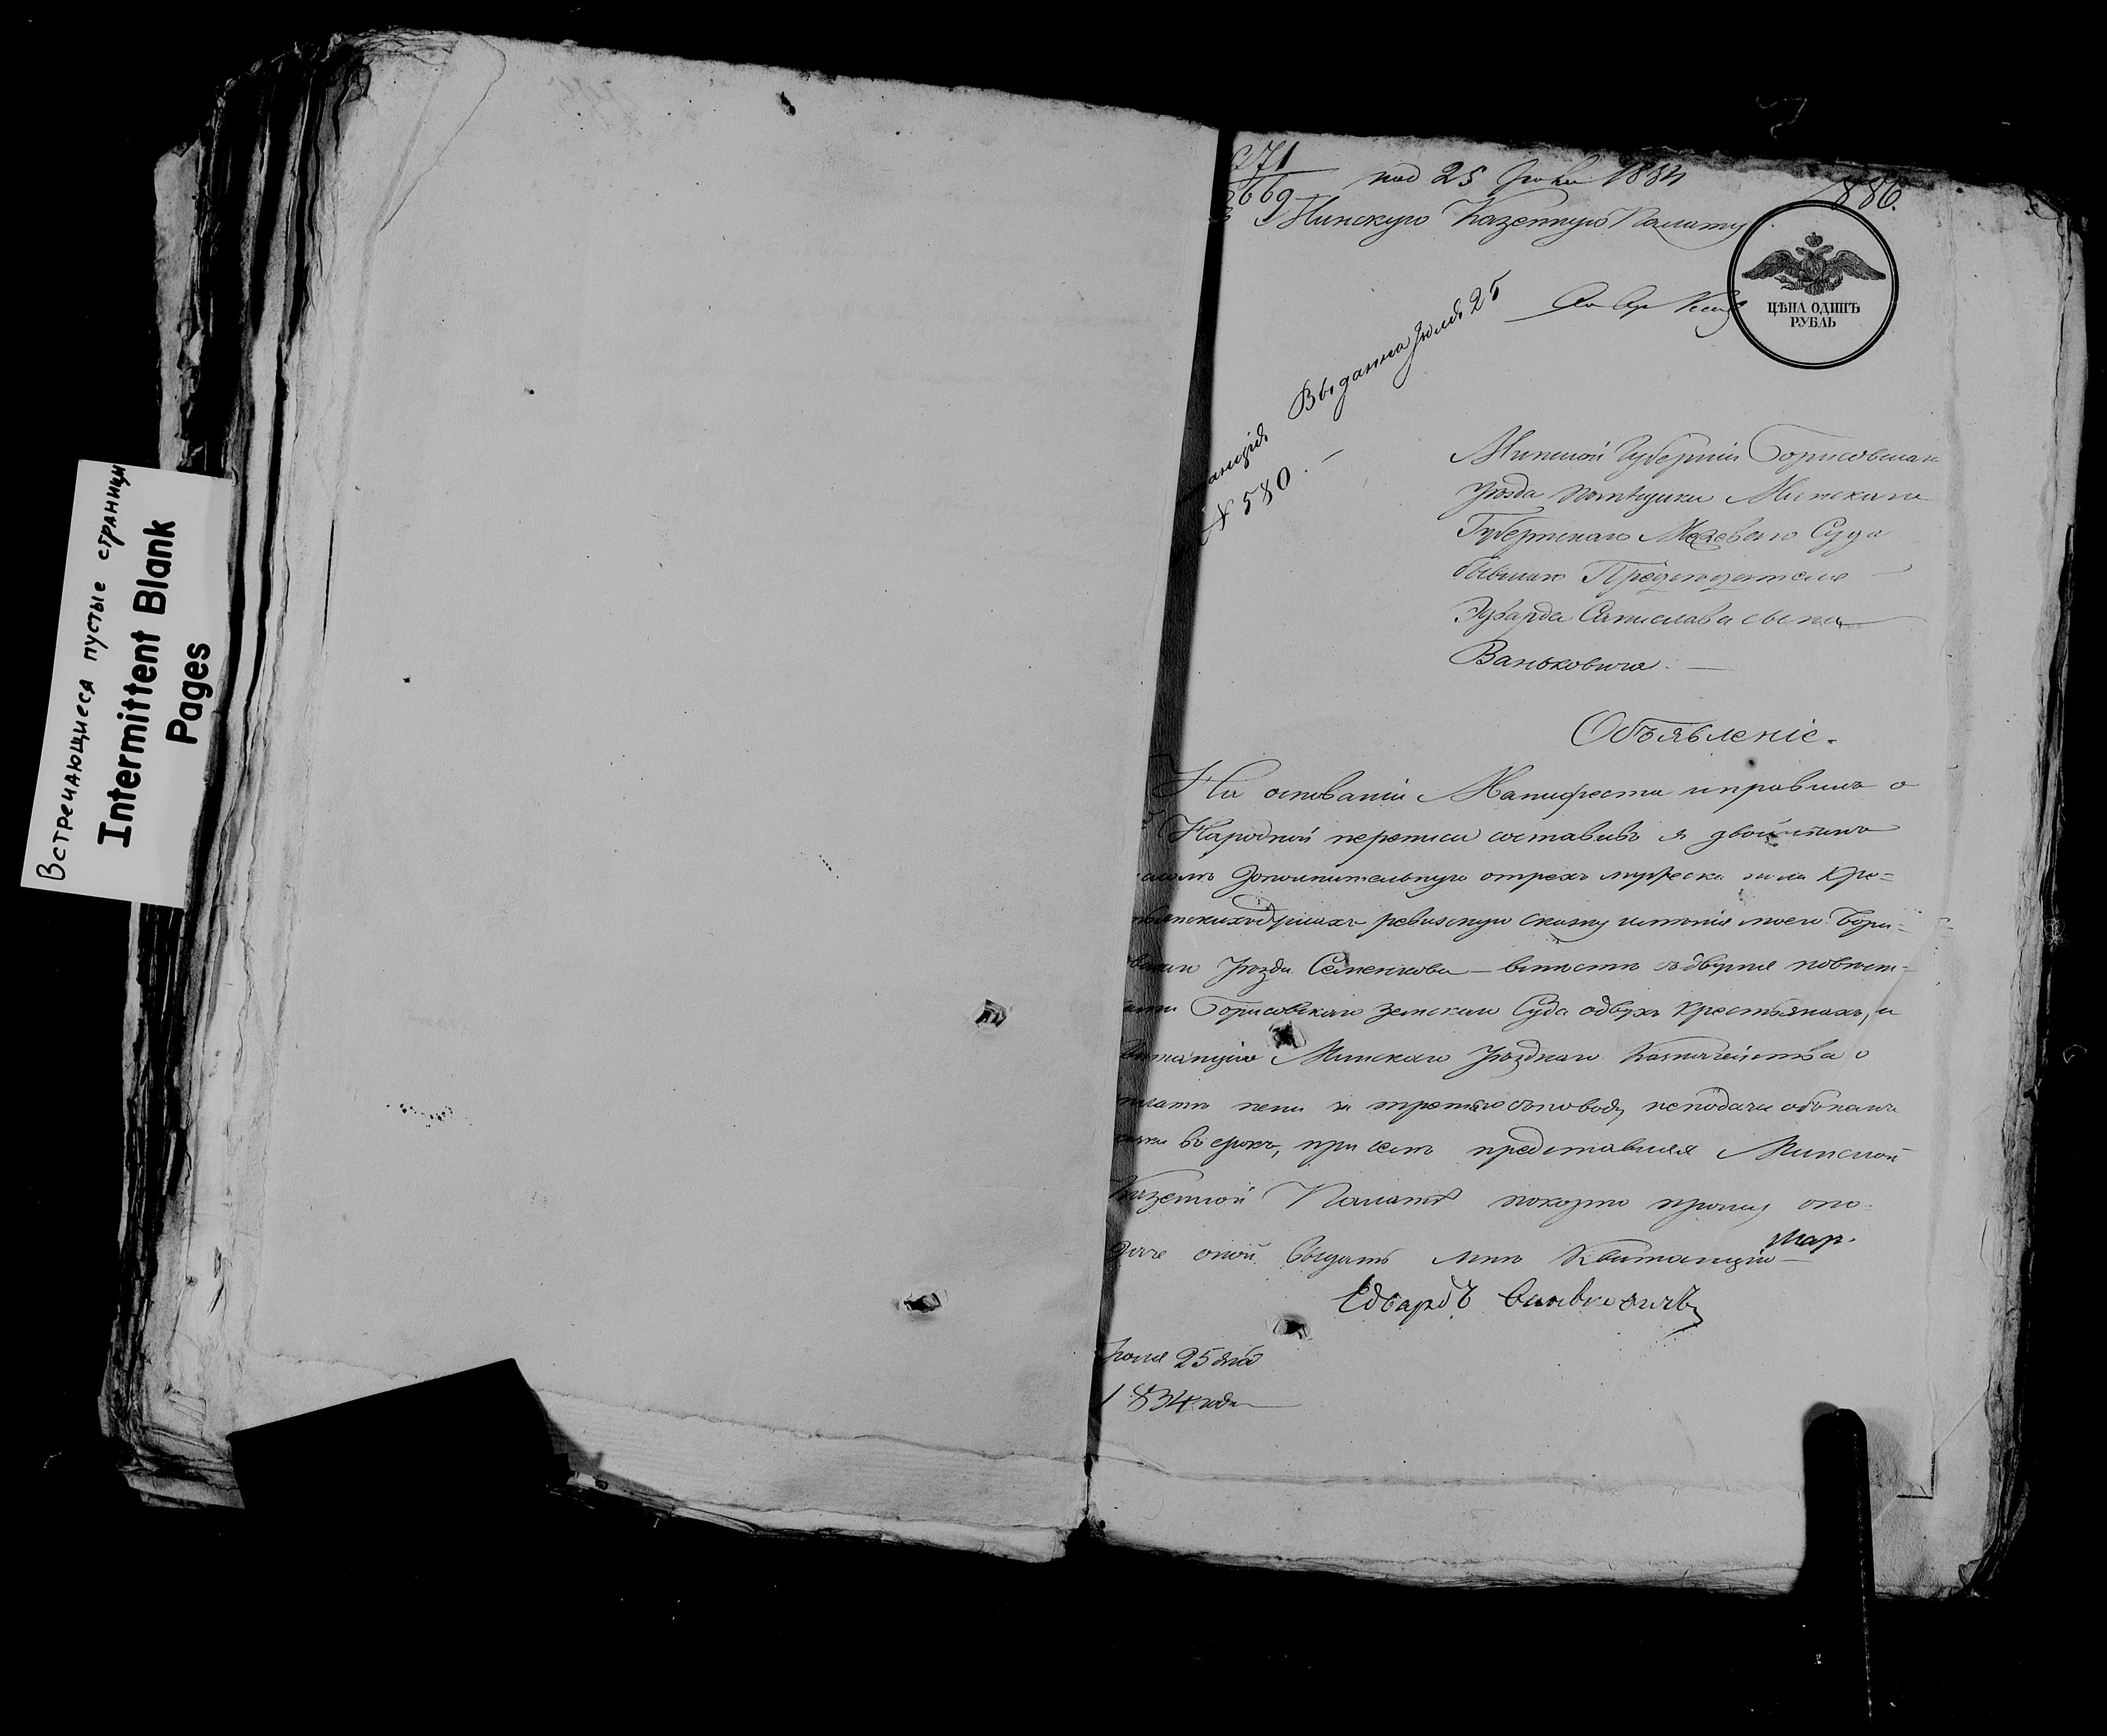 Встречающиеся пустые страницы
Intermittent Blank
Pages
271
669
под 25 1834
886.
Минскую Казенную Палату
ЦѢНА ОДИНЪ
РУБЛЬ
Выданна Іюля 25
№ 580.
Минской Губерніи Борисовскаго
Уѣзда помѣщика Минскаго
Губернскаго Межеваго Суда
бывшаго Предсѣдателя
Эдварда Станислава сына
Ваньковича.
Объявленіе.
На основаніи Манифеста и правилъ о
Народной переписи составивъ я
дополнительную о трехъ мужеска пола Кре=
душахъ ревизскую сказку имѣнія моего Бори=
Уѣзда вмѣстѣ съ двумя
Борисовскаго Земскаго Суда о двухъ крестьянахъ, и
Минскаго Уѣзднаго Казначейства о
пени за неподачи
въ срокъ, при семъ представляя Минской
Казенной Палатѣ покорно прошу о по=
даче оной выдать мнѣ Квитанцію
Мар.
Едвардъ Ваньковичъ
25 дня
1834 года